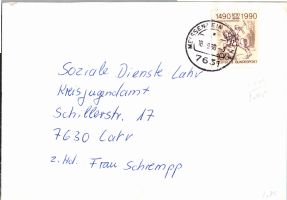 1490 1990
MEISSENHEIM
7631
DEUTSCHE BUNDESPOST
Soziale Dienste Lahr
Kreisjugendamt
Schillerstr. 17
7630 Lahr
z. Hd. Frau Schrempp